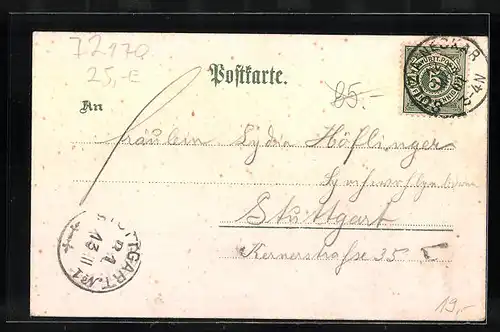 72170
25,-E
Postkarte.
85.-
NECKAR
5
3-4N
An
Fräulein Lydia Höflinger
Stuttgart
Kernerstraße 35
STUTTGART. No 1
13 II
19,-